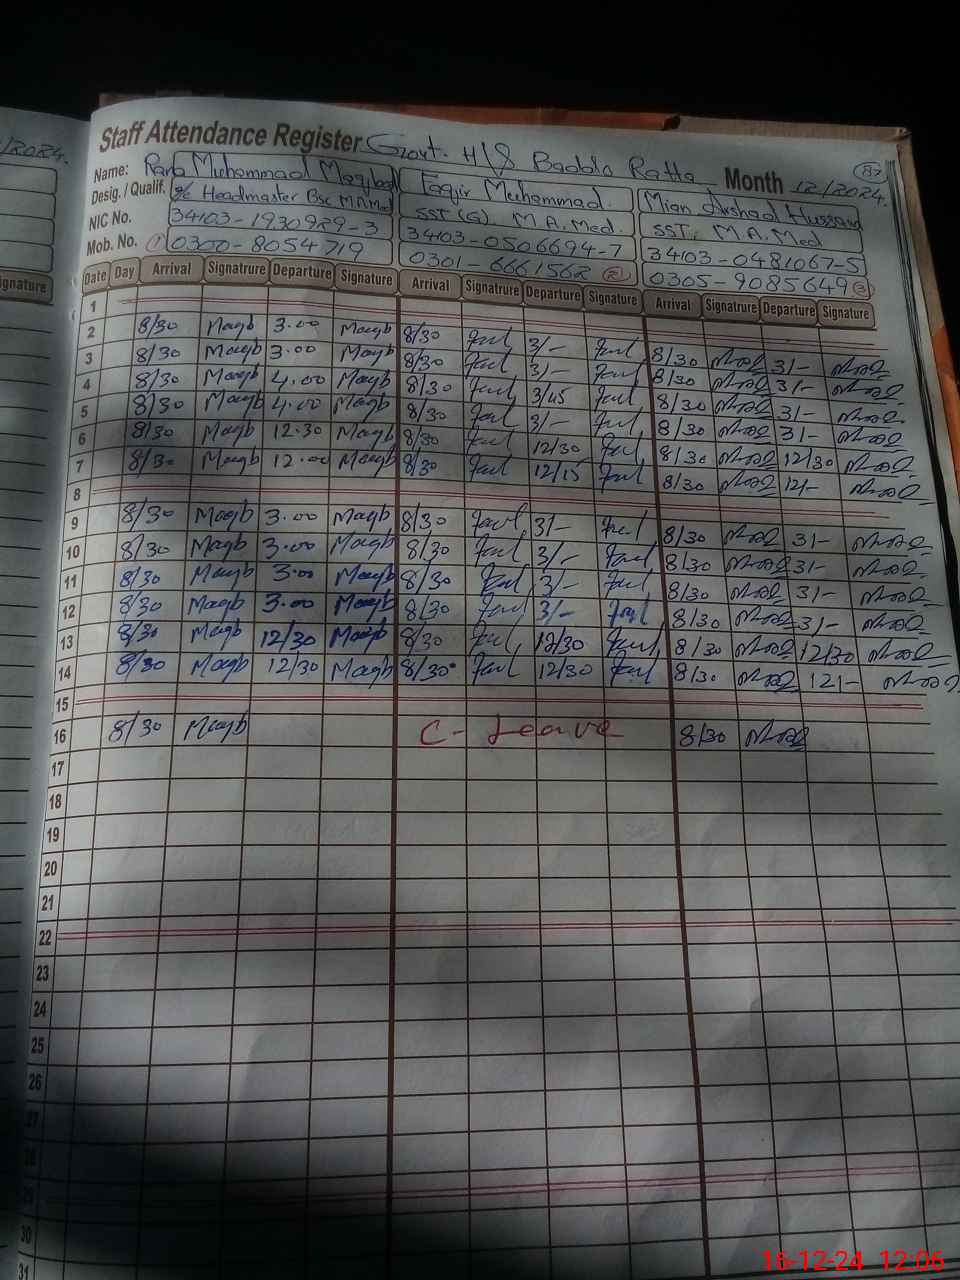 /2024.
Staff Attendance Register Govt. H/S Baddo Ratta Month 12/2024. 87
Name: Rana Muhammad Maqbool Faqir Muhammad. Mian Arshad Hussain
Desig. / Qualif. Headmaster Bsc M.A.Med SST (G) M.A.Med. SST. M.A.Med
NIC No. 34103-1930929-3 34103-0506694-7 34103-0481067-5
Mob. No. 1 0300-8054719 0301-6661562 2 0305-9085649 3
ignature Date Day Arrival Signatrure Departure Signature Arrival Signatrure Departure Signature Arrival Signatrure Departure Signature
1
2 8/30 Maqb 3.00 Maqb 8/30 3/- 8/30 3/-
3 8/30 Maqb 3.00 Maqb 8/30 3/- 8/30 3/-
4 8/30 Maqb 4.00 Maqb 8/30 3/45 8/30 3/-
5 8/30 Maqb 4.00 Maqb 8/30 3/- 8/30 3/-
6 8/30 Maqb 12.30 Maqb 8/30 12/30 8/30 12/30
7 8/30 Maqb 12.00 Maqb 8/30 12/15 8/30 12/-
8
9 8/30 Maqb 3.00 Maqb 8/30 3/- 8/30 3/-
10 8/30 Maqb 3.00 Maqb 8/30 3/- 8/30 3/-
11 8/30 Maqb 3.00 Maqb 8/30 3/- 8/30 3/-
12 8/30 Maqb 3.00 Maqb 8/30 3/- 8/30 3/-
13 8/30 Maqb 12/30 Maqb 8/30 12/30 8/30 12/30
14 8/30 Maqb 12/30 Maqb 8/30 12/30 8/30 12/-
15
16 8/30 Maqb C- Leave 8/30
17
18
19
20
21
22
23
24
25
26
27
28
29
30
31
16-12-24 12:06